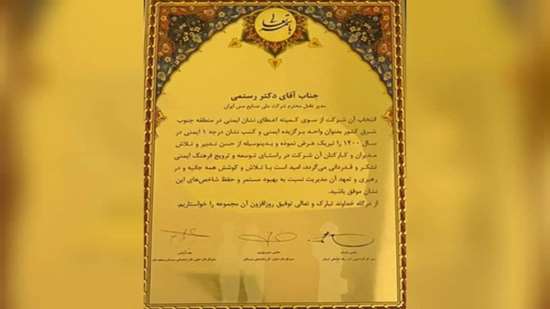 جناب آقای دکتر رستمی
مدیر عامل محترم شرکت ملی صنایع مس ایران
انتخاب آن شرکت از سوی کمیته اعطای نشان ایمنی در منطقه جنوب
شرق کشور بعنوان واحد برگزیده ایمنی و کسب نشان درجه ۱ ایمنی در
سال ۱۴۰۰ را تبریک عرض نموده و بدینوسیله از حسن تدبیر و تلاش
مدیران و کارکنان آن شرکت در راستای توسعه و ترویج فرهنگ ایمنی
تشکر و قدردانی می‌گردد، امید است با تلاش و کوشش همه جانبه و در
رهبری و تعهد آن مدیریت نسبت به بهبود مستمر و حفظ شاخص‌های این
نشان موفق باشید.
از درگاه خداوند تبارک و تعالی توفیق روزافزون آن مجموعه را خواستاریم.